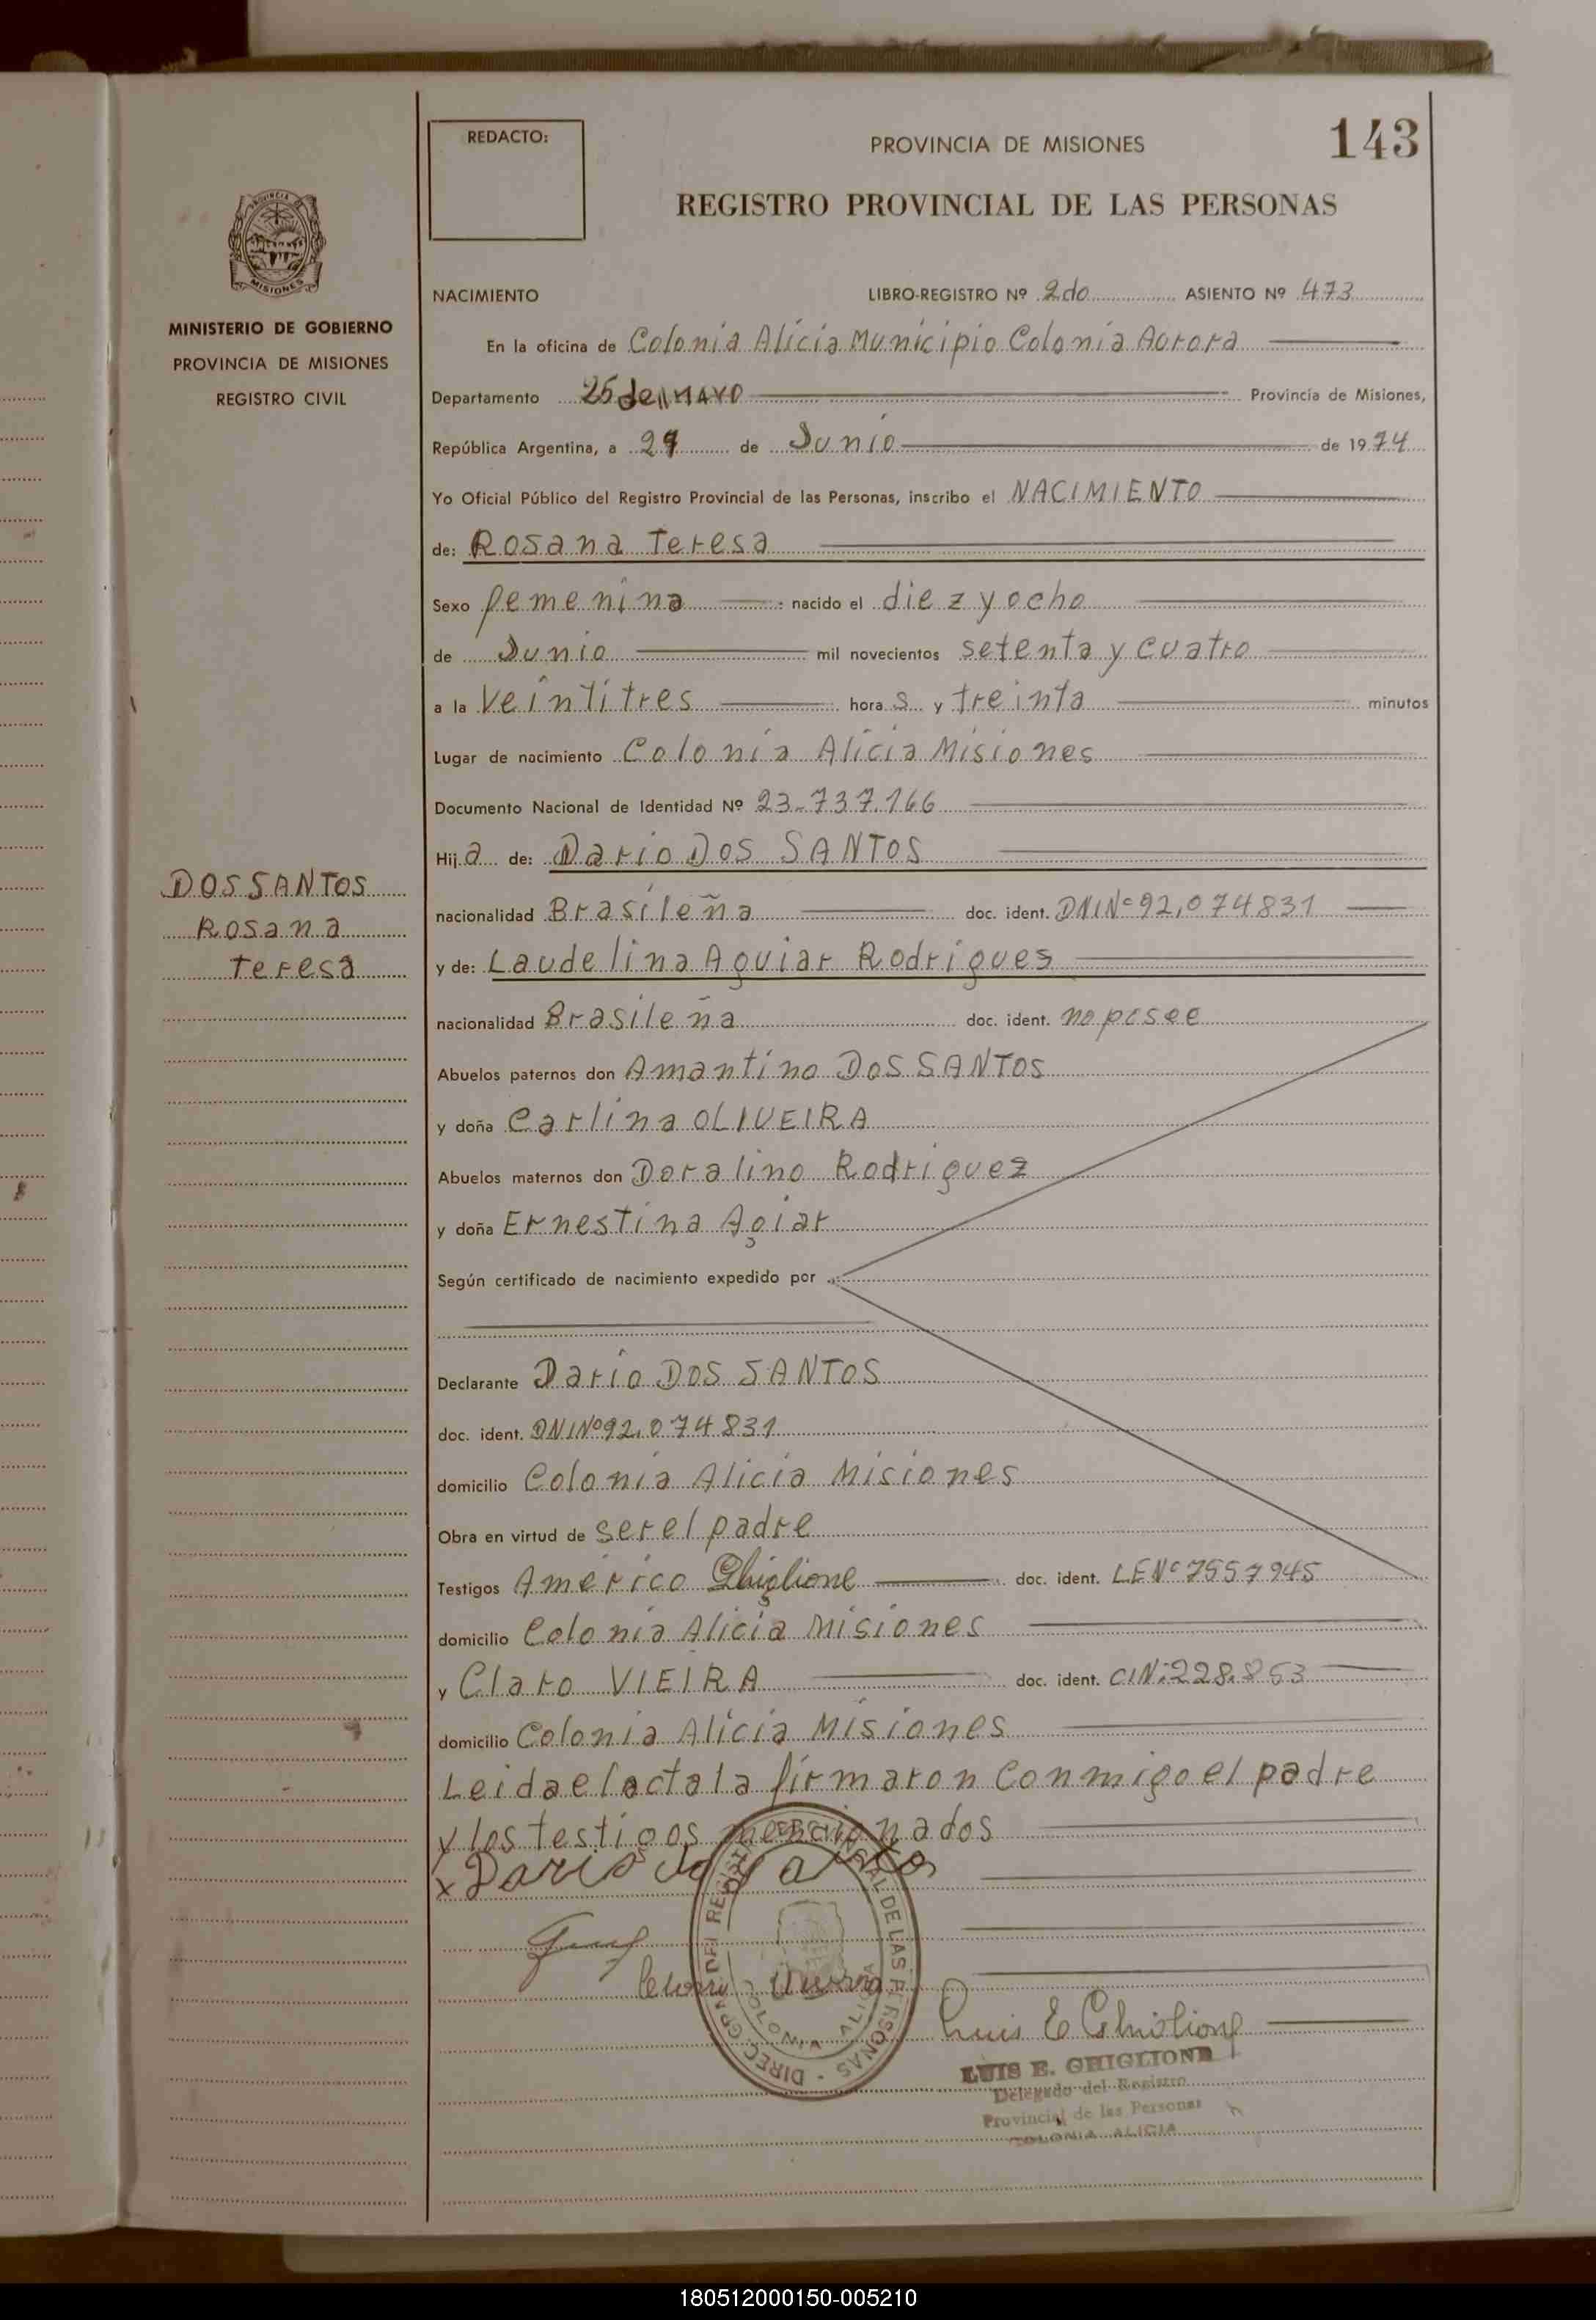 143
REDACTO:
PROVINCIA DE MISIONES
REGISTRO PROVINCIAL DE LAS PERSONAS
MISIONES
MINISTERIO DE GOBIERNO
PROVINCIA DE MISIONES
REGISTRO CIVIL
DOS SANTOS
Rosana
Teresa
NACIMIENTO LIBRO-REGISTRO Nº 2do ASIENTO Nº 473
En la oficina de Colonia Alicia Municipio Colonia Aurora
Departamento 25 de MAYO Provincia de Misiones,
República Argentina, a 29 de Junio de 1974
Yo Oficial Público del Registro Provincial de las Personas, inscribo el NACIMIENTO
de: Rosana Teresa
Sexo femenina : nacido el diez y ocho
de Junio mil novecientos setenta y cuatro
a la Veintitres hora s y treinta minutos
Lugar de nacimiento Colonia Alicia Misiones
Documento Nacional de Identidad Nº 23.737.166
Hij a de: Dario DOS SANTOS
nacionalidad Brasileña doc. ident. DNI Nº 92,074831
y de: Laudelina Aguiar Rodrigues
nacionalidad Brasileña doc. ident. no posee
Abuelos paternos don Amantino DOS SANTOS
y doña Carlina OLIVEIRA
Abuelos maternos don Doralino Rodriguez
y doña Ernestina Agiar
Según certificado de nacimiento expedido por
Declarante Dario DOS SANTOS
doc. ident. DNI Nº 92,074831
domicilio Colonia Alicia Misiones
Obra en virtud de ser el padre
Testigos Américo Ghiglione doc. ident. LE Nº 7557945
domicilio Colonia Alicia Misiones
y Claro VIEIRA doc. ident. CIN: 228.853
domicilio Colonia Alicia Misiones
Leida el acta la firmaron conmigo el padre
y los testigos mencionados
x Dario do Santos
DIREC. GRAL. DEL REGISTRO PROVINCIAL DE LAS PERSONAS
COLONIA ALICIA
Luis E Ghiglione
LUIS E. GHIGLIONE
Delegado del Registro
Provincial de las Personas
COLONIA ALICIA
180512000150-005210